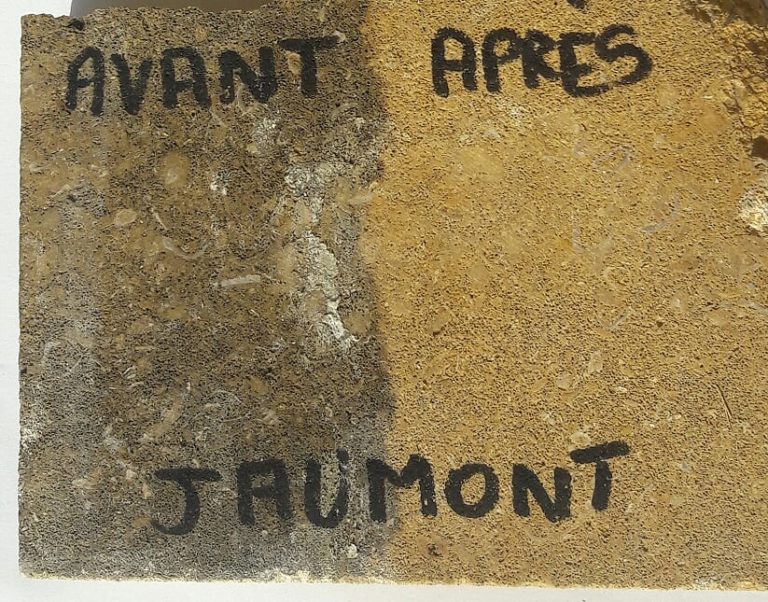 AVANT APRÈS
JAUMONT